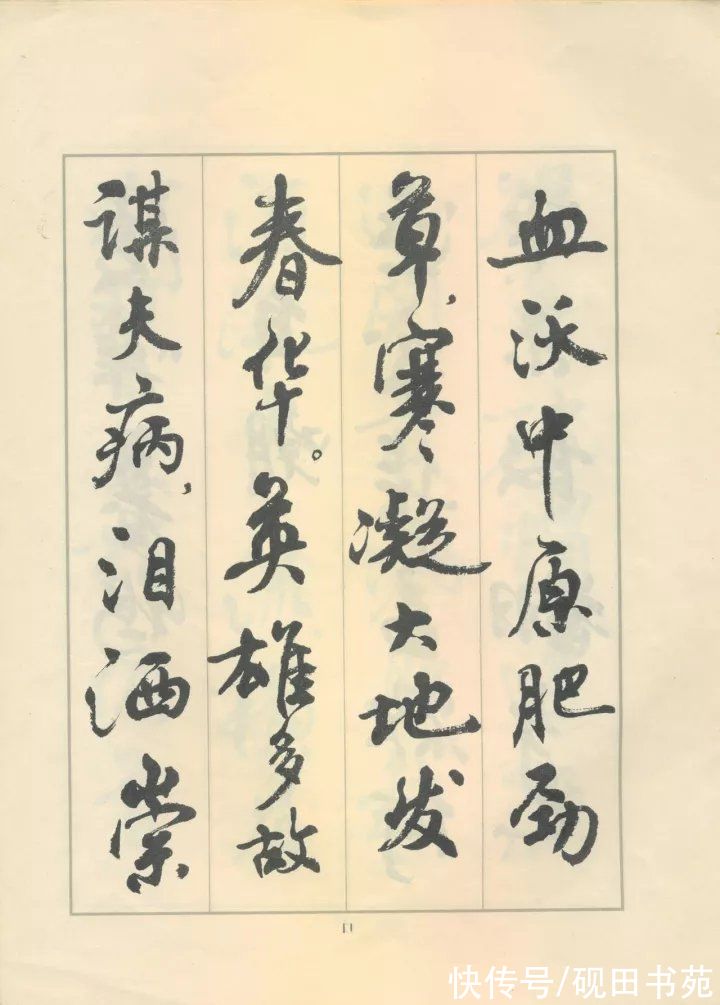 血沃中原肥劲
草，寒凝大地发
春华。英雄多故
谋夫病，泪洒崇
快传号/砚田书苑